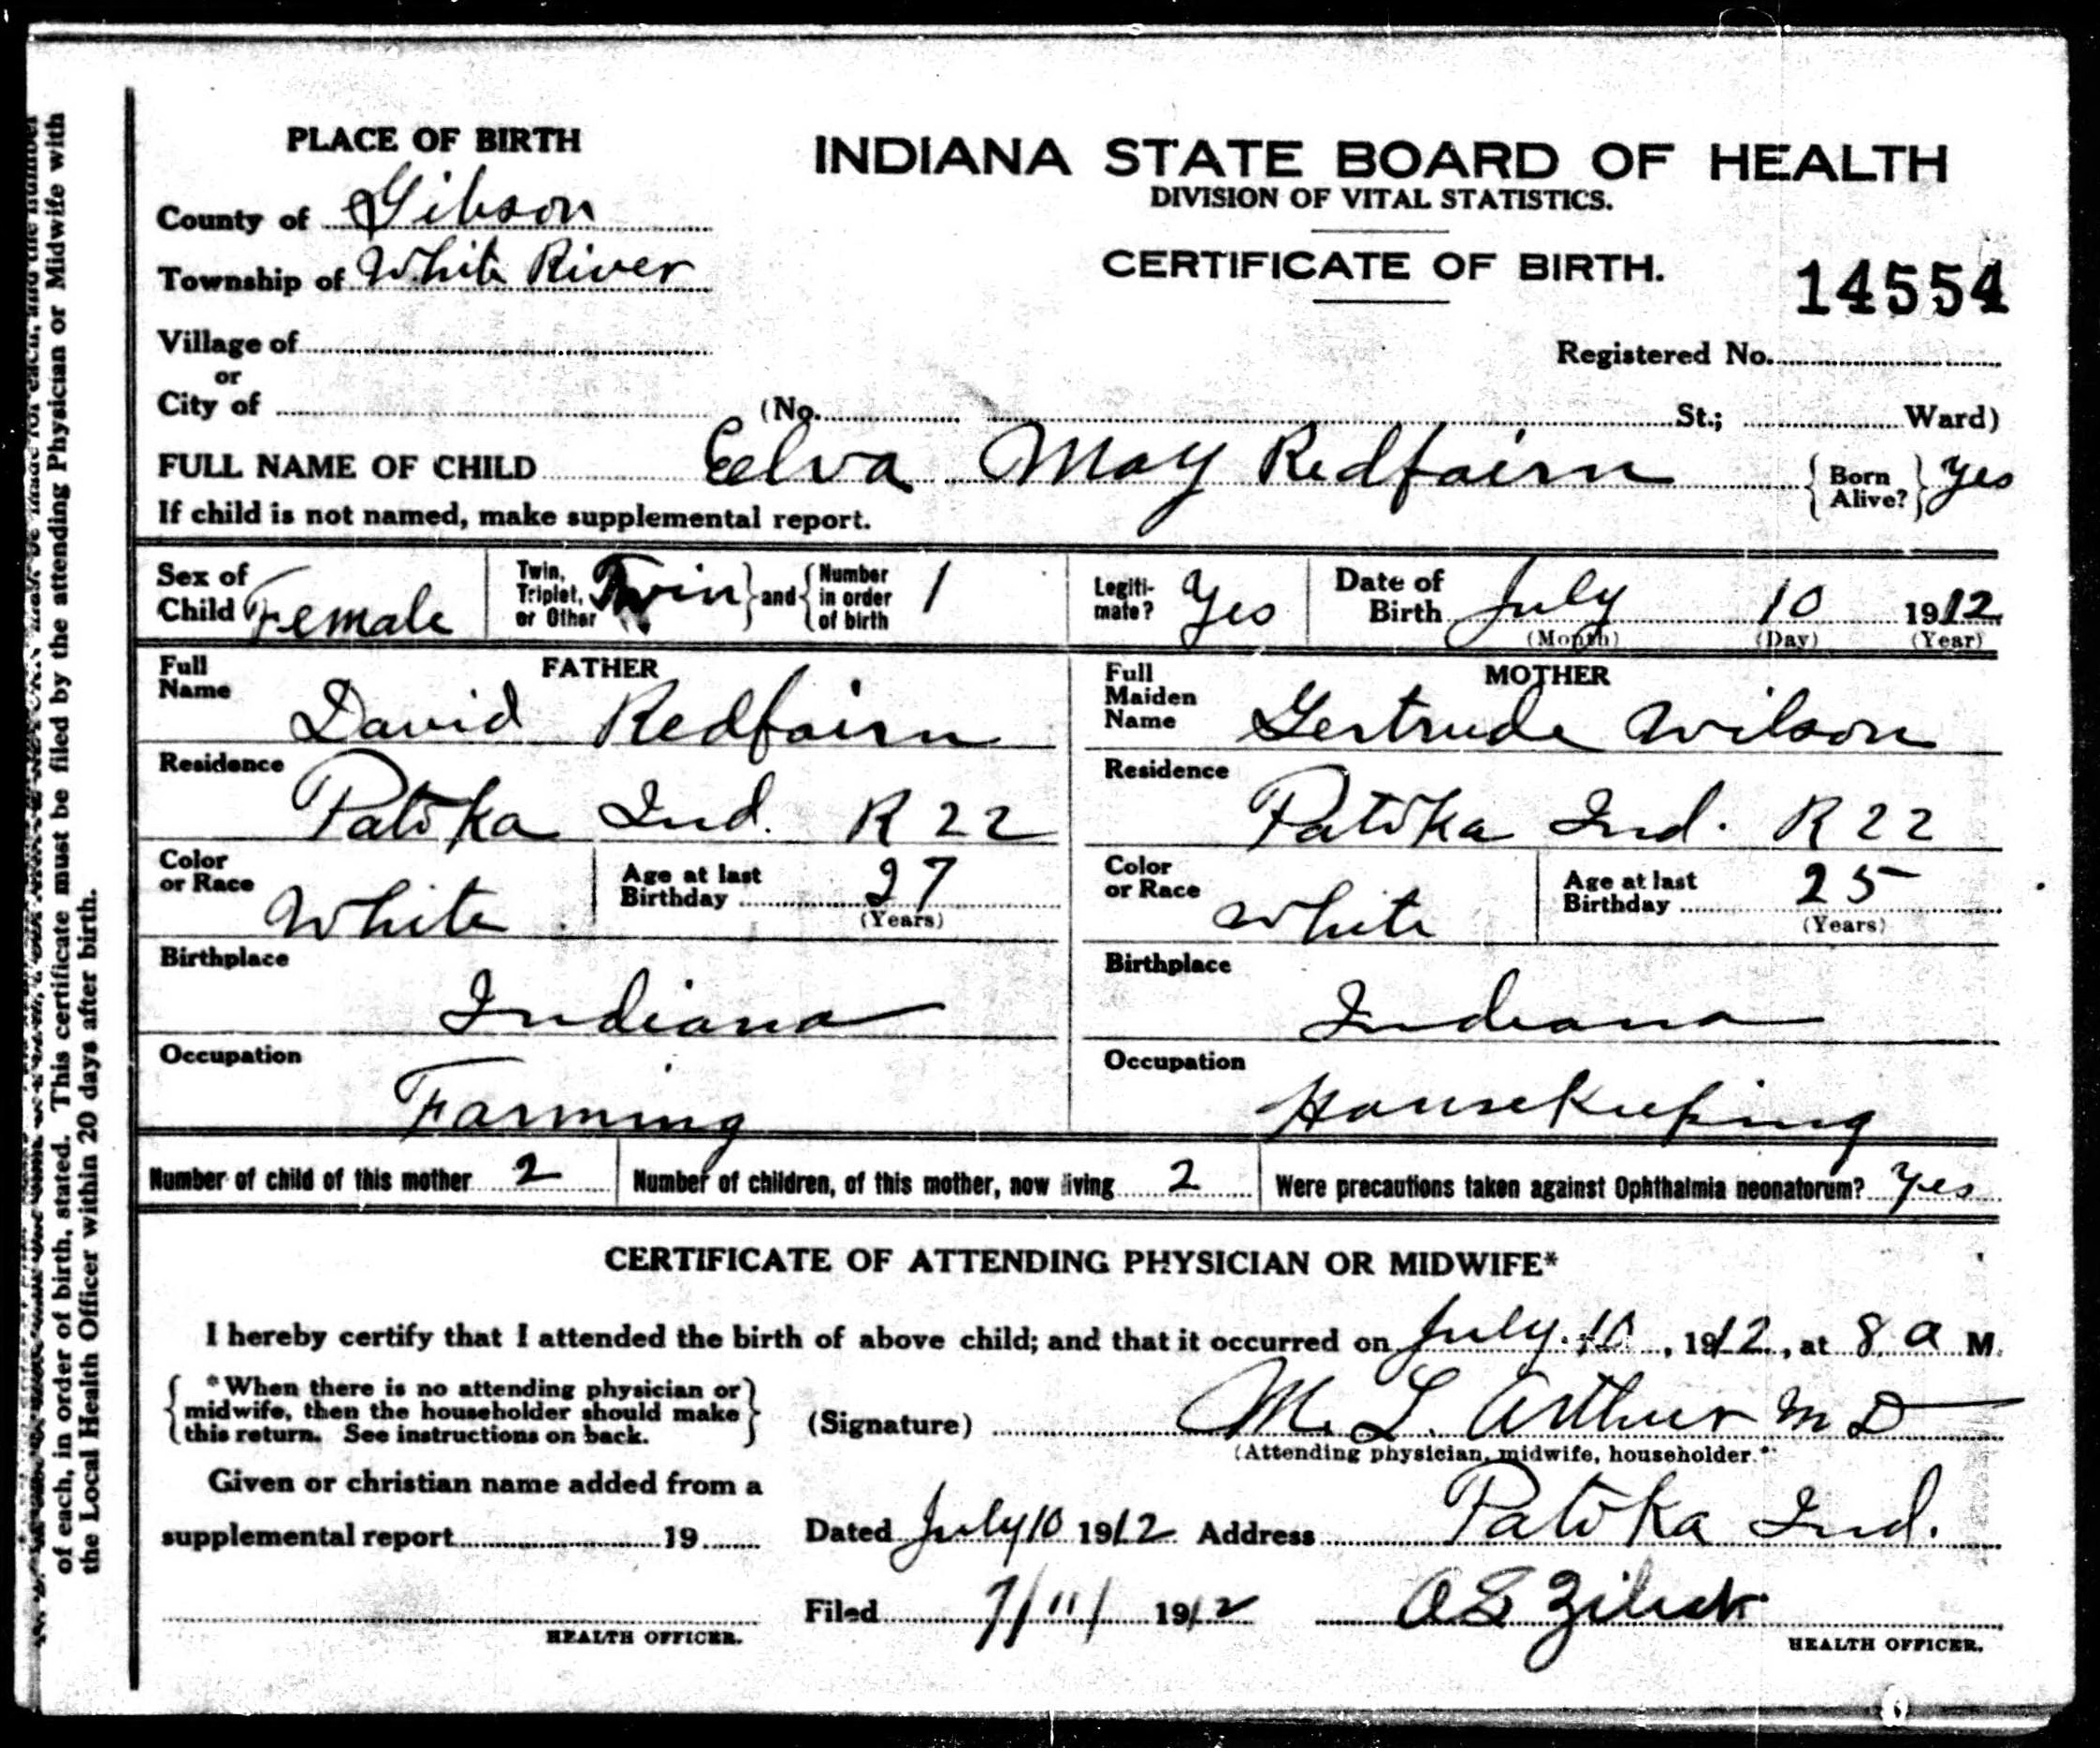 PLACE OF BIRTH
County of Gibson
Township of White River
Village of
or
City of
INDIANA STATE BOARD OF HEALTH
DIVISION OF VITAL STATISTICS.
CERTIFICATE OF BIRTH.
14554
Registered No.
(No. St.; Ward)
FULL NAME OF CHILD Eelva May Redfairn { Born Alive? } Yes
If child is not named, make supplemental report.
Sex of Child Female
Twin, Triplet, or Other Twin } and { Number in order of birth 1
Legiti-mate? Yes
Date of Birth July 10 1912
(Month) (Day) (Year)
FATHER
Full Name David Redfairn
Residence Patoka Ind. R 22
Color or Race White
Age at last Birthday 27
(Years)
Birthplace Indiana
Occupation Farming
MOTHER
Full Maiden Name Gertrude Wilson
Residence Patoka Ind. R 22
Color or Race White
Age at last Birthday 25
(Years)
Birthplace Indiana
Occupation Housekeeping
Number of child of this mother 2
Number of children, of this mother, now living 2
Were precautions taken against Ophthalmia neonatorum? Yes
CERTIFICATE OF ATTENDING PHYSICIAN OR MIDWIFE*
I hereby certify that I attended the birth of above child; and that it occurred on July 10, 1912, at 8 a M.
{ *When there is no attending physician or
midwife, then the householder should make
this return. See instructions on back. }
(Signature) M. L. Arthur M D
(Attending physician, midwife, householder.*)
Given or christian name added from a
supplemental report 19
HEALTH OFFICER.
Dated July 10 1912 Address Patoka Ind.
Filed 7/11/ 1912
HEALTH OFFICER.
of each, in order of birth, stated. This certificate must be filed by the attending Physician or Midwife with
the Local Health Officer within 20 days after birth.